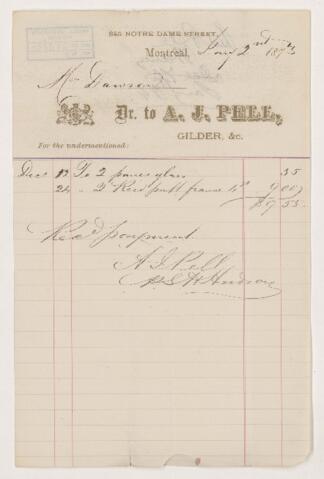 345 NOTRE DAME STREET,
Montreal, Jany 2nd 187
Mr Dawson
Dr. to A. J. PELL,
GILDER, &c.
For the undermentioned:
Decr 12 To 2 panes glass 35
24 " 2 frames 9 00
$9 35
Recd payment
A J Pell
Hudson